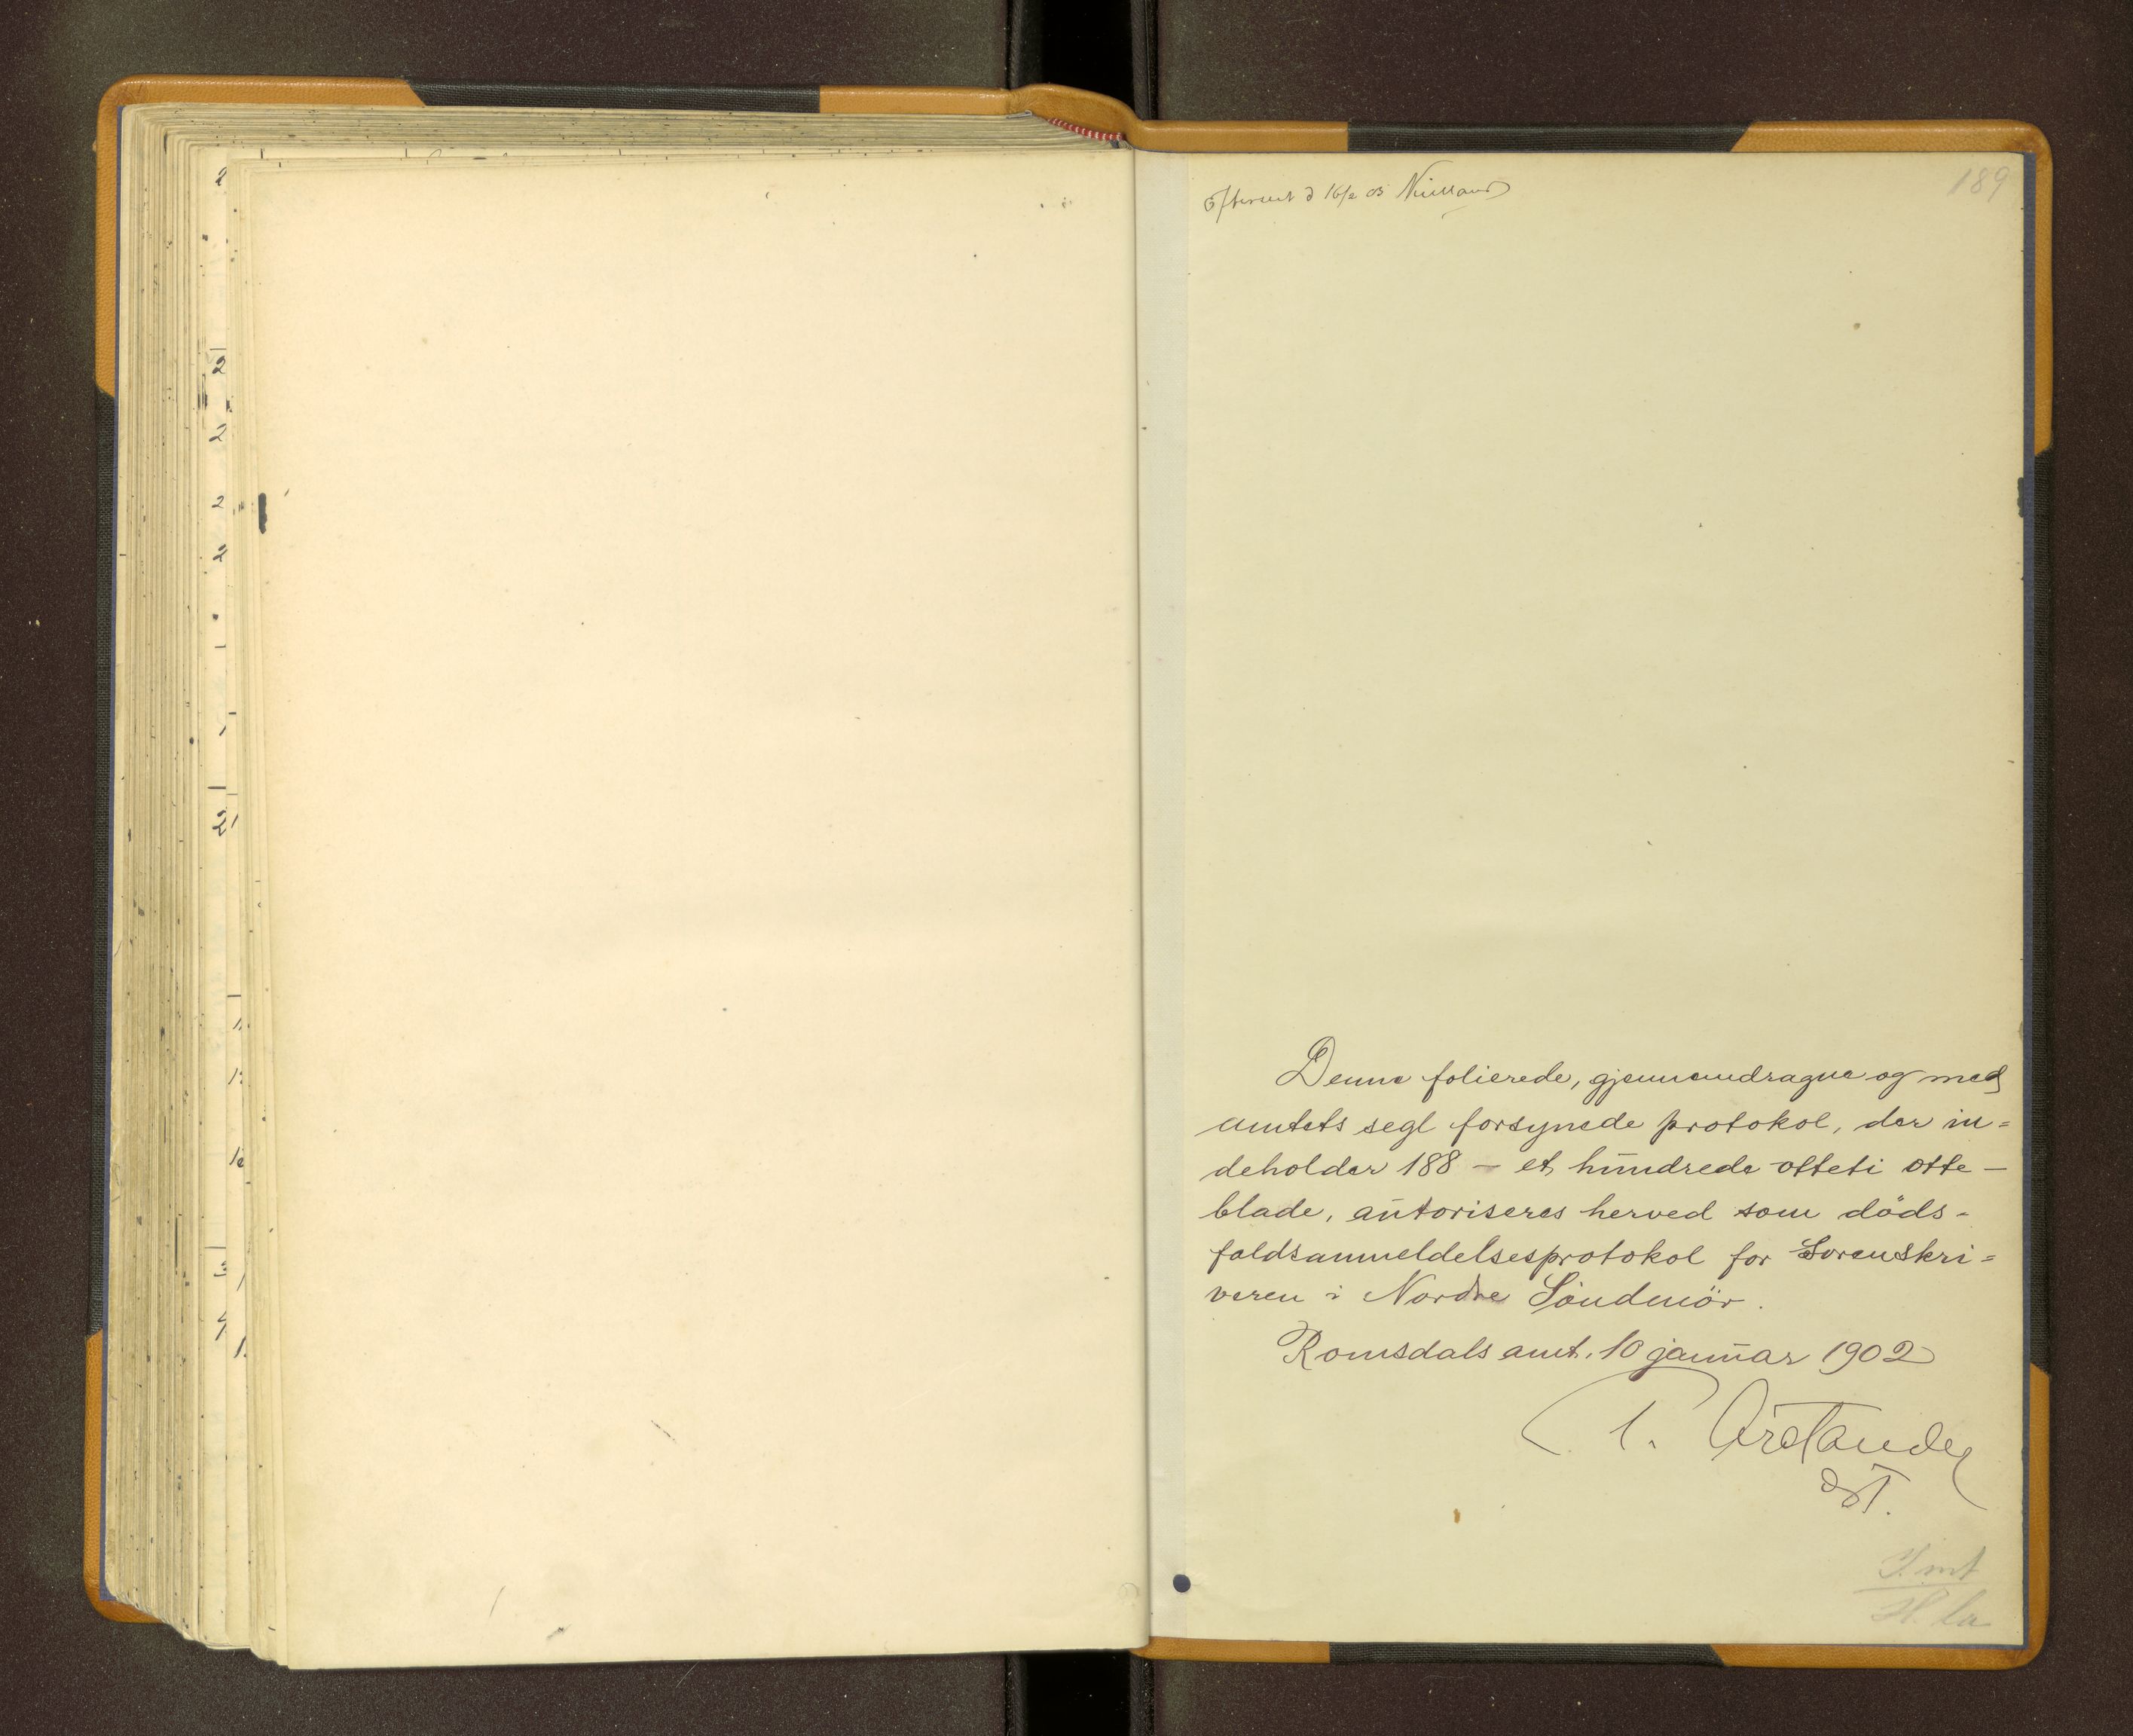 Efterseet d 16/2 03
189
Denne folierede, gjennemdragne og med
amtets segl forsynede protokol, der in=
deholder 188 – et hundrede otteti otte –
blade, autoriseres herved som döds-
faldsanmeldelsesprotokol for Sorenskri=
veren i Nordre Söndmör.
Romsdals amt, 10 januar 1902